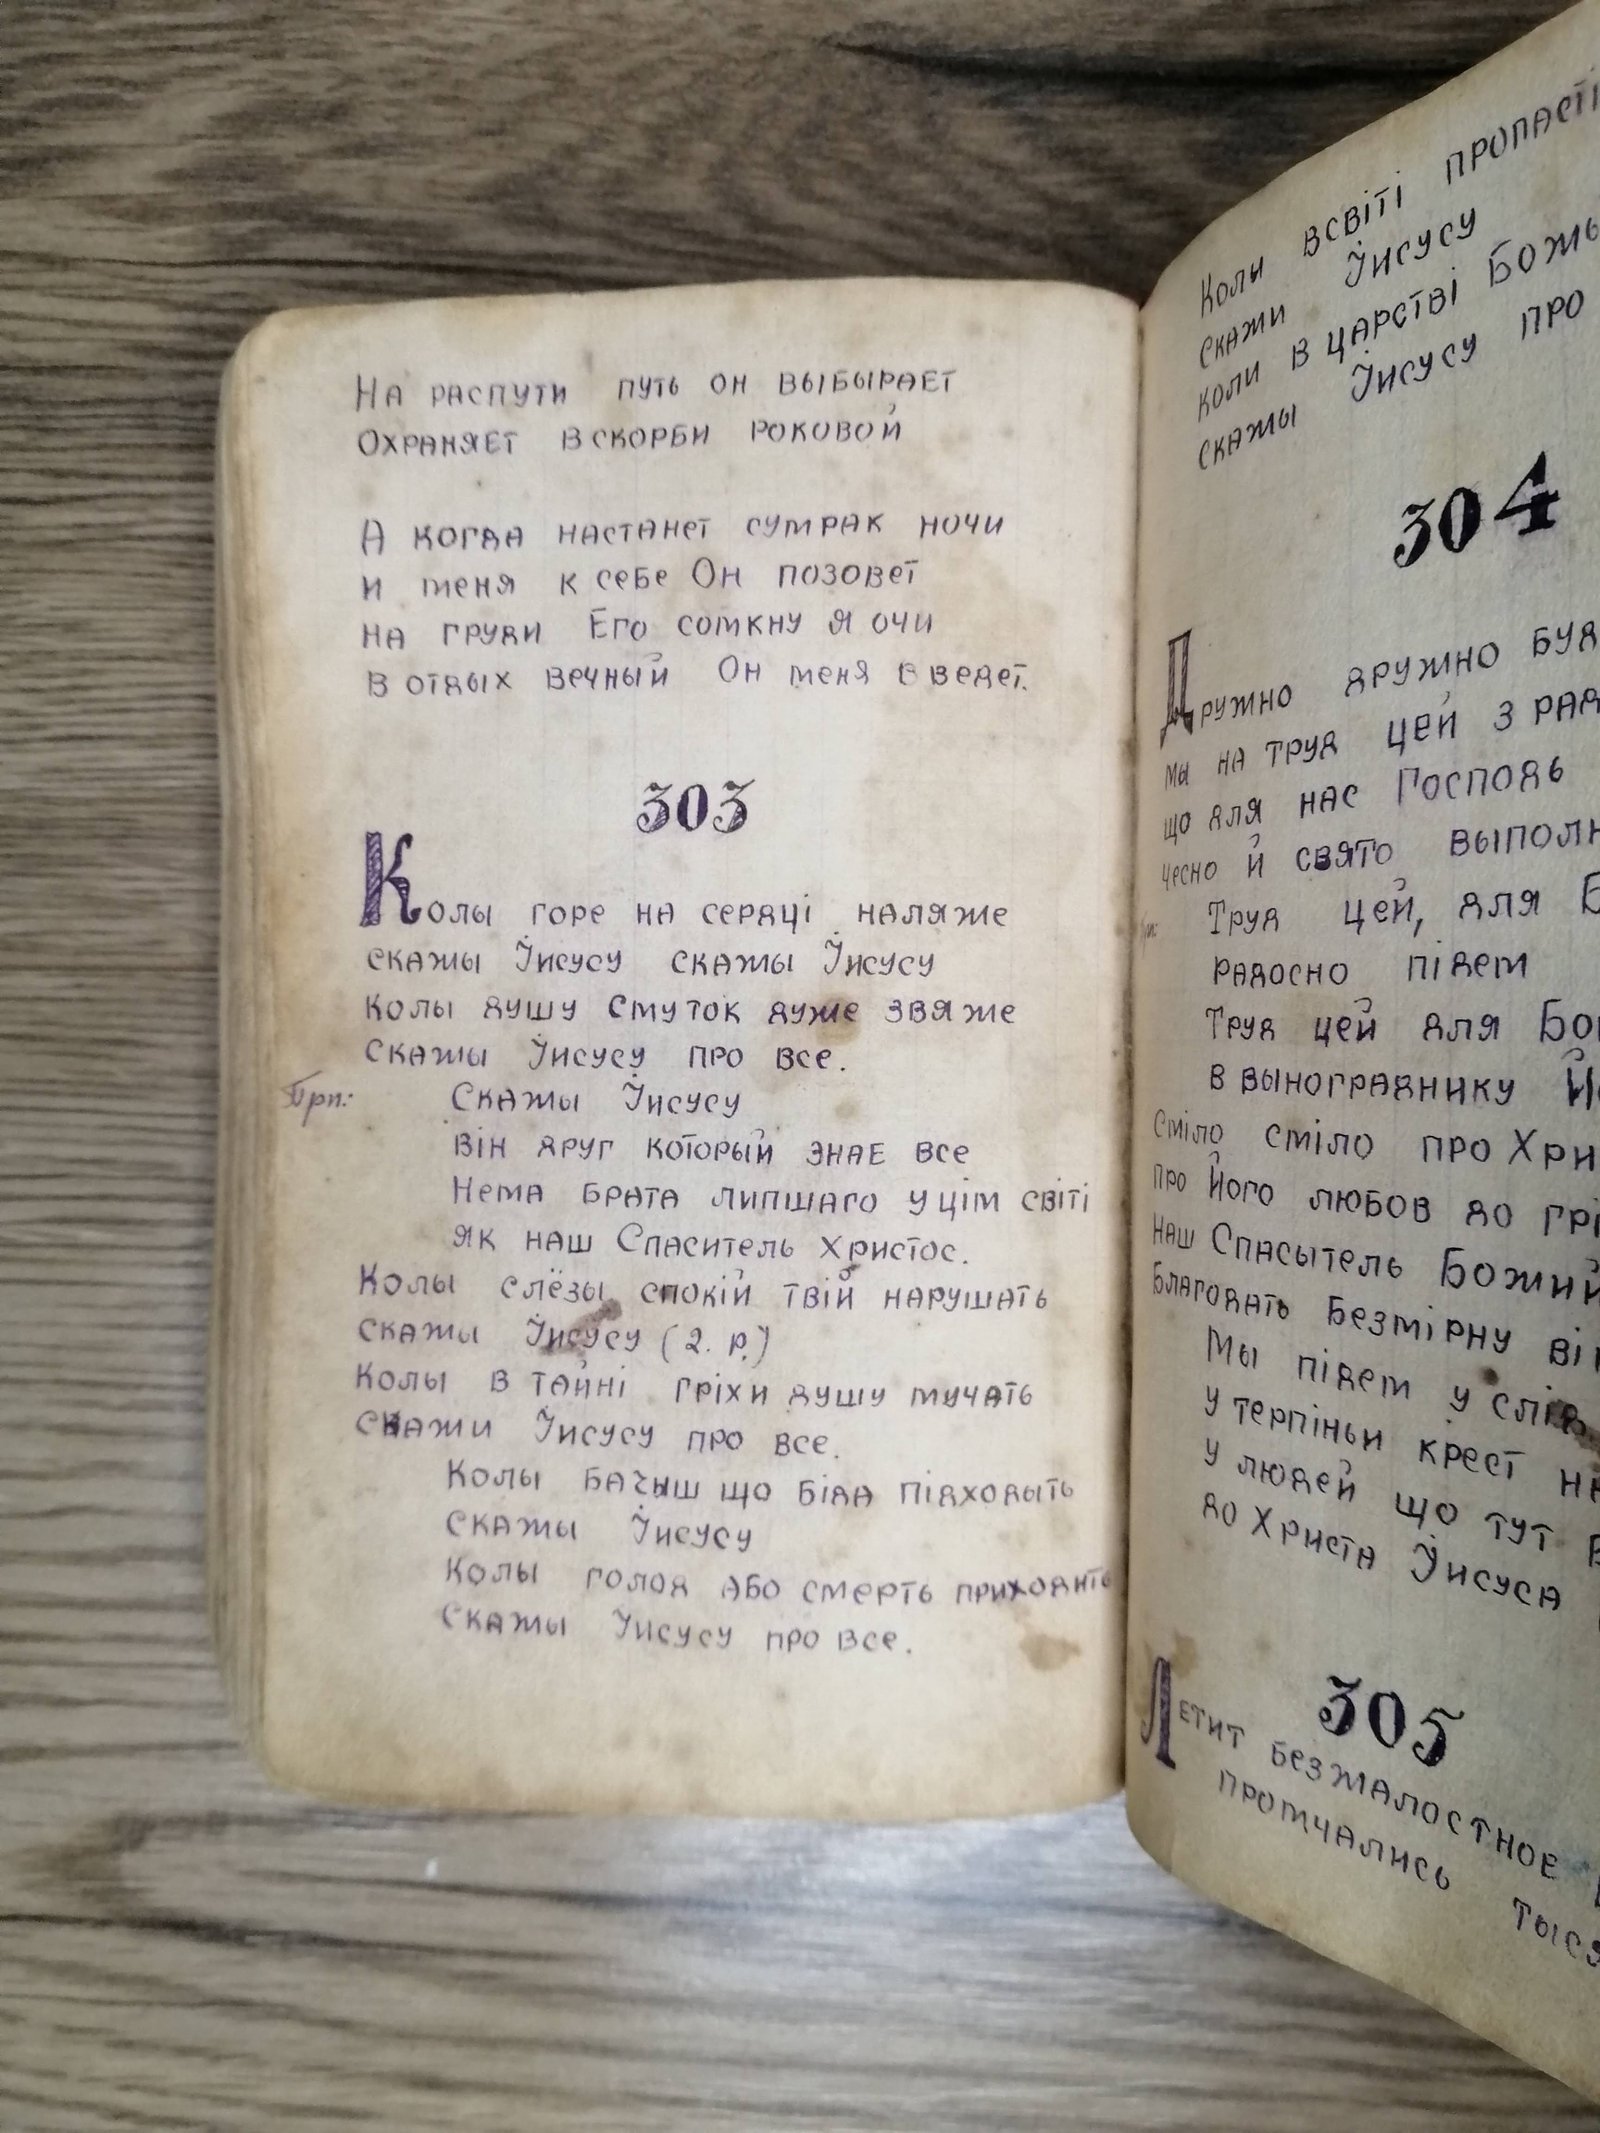 На распути путь он выбырает
охраняет вскорби роковой
А когда настанет сумрак ночи
и меня к себе Он позовет
на груди Его сомкну я очи
в отдых вечный Он меня введет.
303
Колы горе на сердці наляже
скажы Їисусу скажы Їисусу
колы душу смуток дуже звяже
скажы Їисусу про все.
Прп: Скажы Їисусу
він друг который знае все
Нема брата липшаго у цім світі
як наш Спаситель Христос.
Колы слёзы спокій твій нарушать
скажы Їисусу (2. р.)
колы в тайні гріхи душу мучать
скажи Їисусу про все.
Колы бачыш що біда підходыть
скажы Їисусу
Колы голод або смерть приходить
скажы Їисусу про все.
Коли всвіті пропасті
скажи Їисусу
коли в царстві Божь
скажы Їисусу про
304
Дружно дружно буд
мы на труд цей з рад
що для нас Господь
чесно й свято выполн
Труд цей, для Б
радосно підем
Труд цей для Бо
в вынограднику Й
Сміло сміло про Хри
про Його любов до грі
наш Спасытель Божий
благодать безмірну ві
Мы підем у слів
у терпіньи крест на
у людей що тут в
до Христа Їисуса
305
Летит безжалостное
промчались тыся